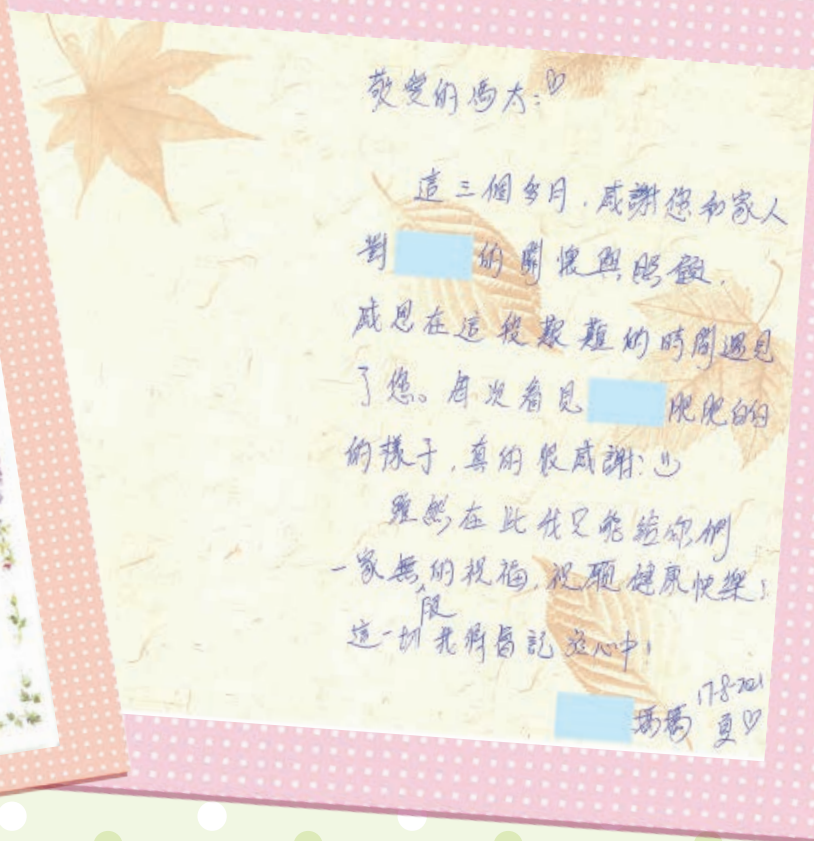 敬愛的馮太:♡
這三個多月,感謝您和家人
對 的關懷與照顧,
感恩在這段艱難的時間遇見
了您。每次看見 肥肥白白
的樣子,真的很感謝:)
雖然在此我只能給你們
一家無限的祝福,祝願健康快樂!
這一切我將會記在心中!
17-8-2021
媽媽 ♡